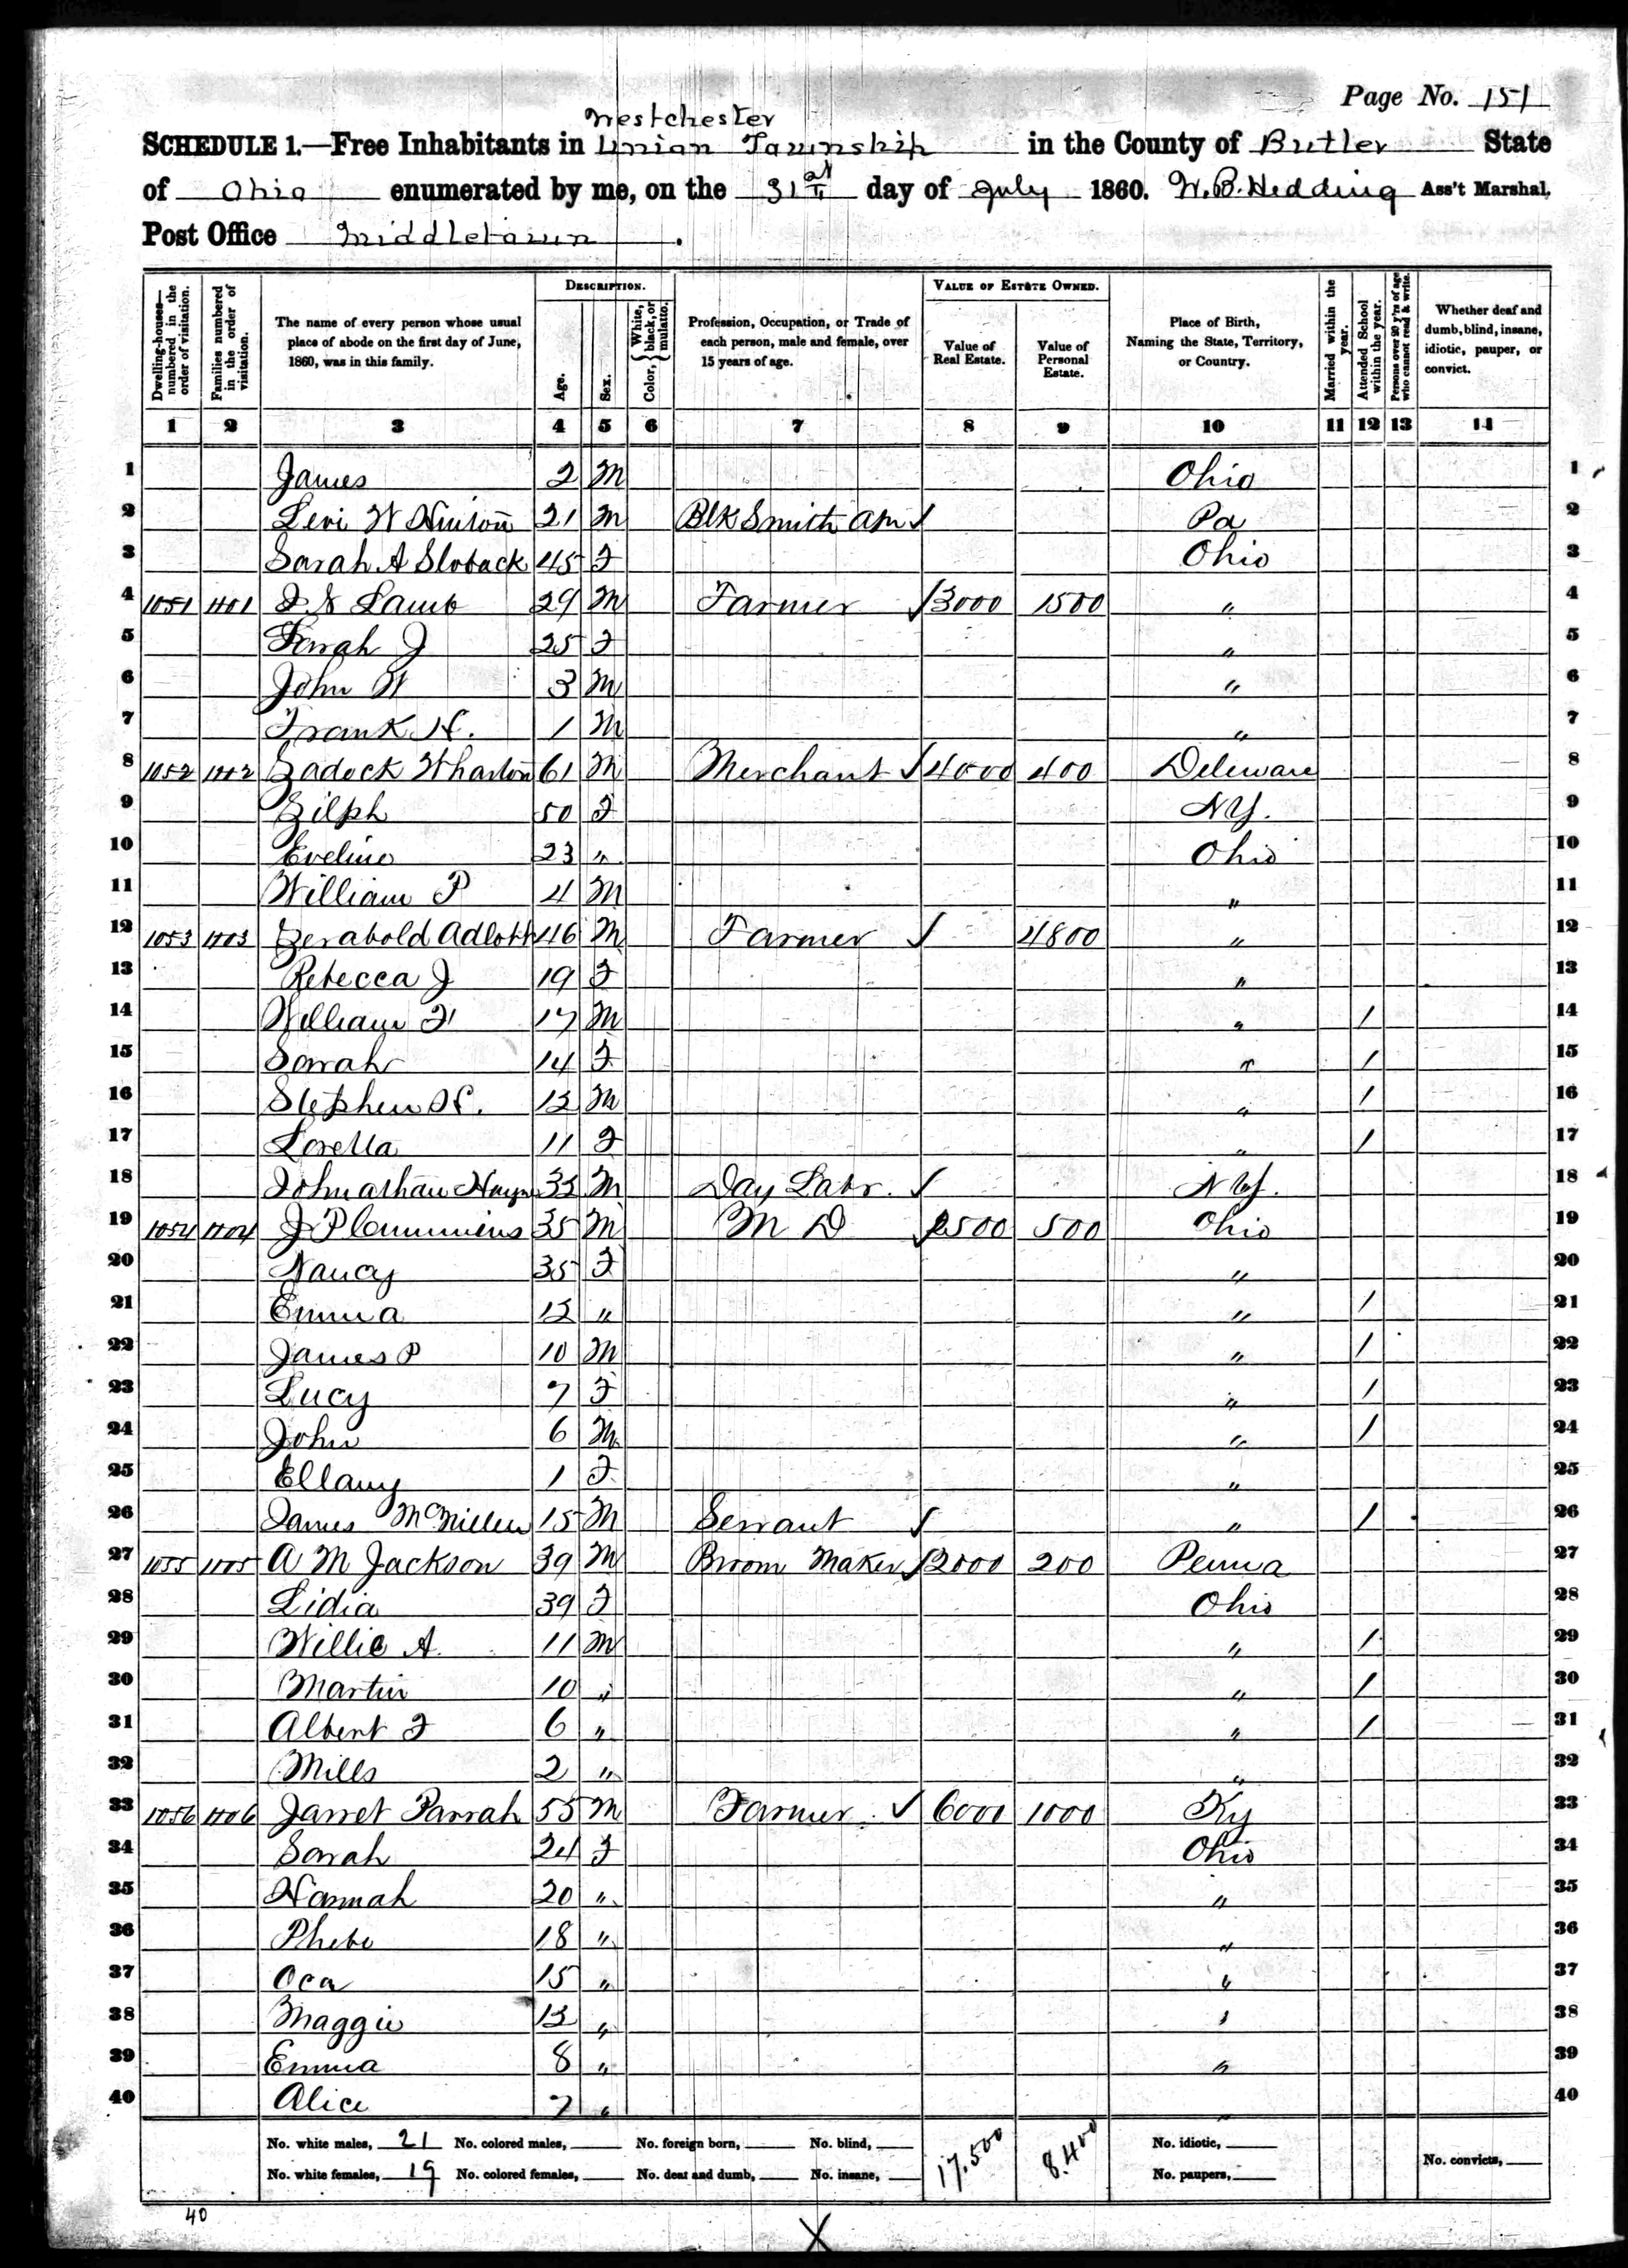 Page No. 151
Westchester
SCHEDULE 1.—Free Inhabitants in Union Township in the County of Butler State
of Ohio enumerated by me, on the 31st day of July 1860. W. B. Hedding Ass't Marshal.
Post Office Middletown.
Dwelling-houses—numbered in the order of visitation.
Families numbered in the order of visitation.
The name of every person whose usual place of abode on the first day of June, 1860, was in this family.
DESCRIPTION.
Age.
Sex.
Color, { White, black, or mulatto.
Profession, Occupation, or Trade of each person, male and female, over 15 years of age.
VALUE OF ESTATE OWNED.
Value of Real Estate.
Value of Personal Estate.
Place of Birth, Naming the State, Territory, or Country.
Married within the year.
Attended School within the year.
Persons over 20 y'rs of age who cannot read & write.
Whether deaf and dumb, blind, insane, idiotic, pauper, or convict.
1 2 3 4 5 6 7 8 9 10 11 12 13 14
1 James 2 M Ohio 1
2 Levi W Hinton 21 M Blk Smith ✓ Pa 2
3 Sarah A Sloback 45 F Ohio 3
4 1051 1101 Lamb 29 M Farmer ✓ 3000 1500 " 4
5 Sarah J 25 F " 5
6 John W 3 M " 6
7 Frank H. 1 M " 7
8 1052 1102 Zadock Wharton 61 M Merchant ✓ 4000 400 Deleware 8
9 Zilph 50 F NY. 9
10 Eveline 23 " Ohio 10
11 William P 4 M " 11
12 1053 1103 Zerabold Adlott 46 M Farmer ✓ 4800 " 12
13 Rebecca J 19 F " 13
14 William F 17 M " / 14
15 Sarah 14 F " / 15
16 Stephen H. 13 M " / 16
17 Loretta 11 F " / 17
18 Johnathan Hayne 33 M Day Labr. ✓ NY. 18
19 1054 1104 J P Cummins 35 M M D ✓ 2500 500 Ohio 19
20 Nancy 35 F " 20
21 Emma 13 " " / 21
22 James P 10 M " / 22
23 Lucy 7 F " / 23
24 John 6 M " / 24
25 Ellany 1 F " 25
26 James McMillen 15 M Servant ✓ " / 26
27 1055 1105 A M Jackson 39 M Broom Maker ✓ 2000 200 Penna 27
28 Lidia 39 F Ohio 28
29 Willie A. 11 M " / 29
30 Martin 10 " " / 30
31 Albert F 6 " " / 31
32 Mills 2 " " 32
33 1056 1106 Jarret Parrah 55 M Farmer ✓ 6000 1000 Ky 33
34 Sarah 24 F Ohio 34
35 Hannah 20 " " 35
36 Phebe 18 " " 36
37 Oca 15 " " 37
38 Maggie 13 " " 38
39 Emma 8 " " 39
40 Alice 7 " " 40
No. white males, 21 No. colored males, No. foreign born, No. blind, 17,500 8,400 No. idiotic,
No. white females, 19 No. colored females, No. deaf and dumb, No. insane, No. paupers, No. convicts,
40
X